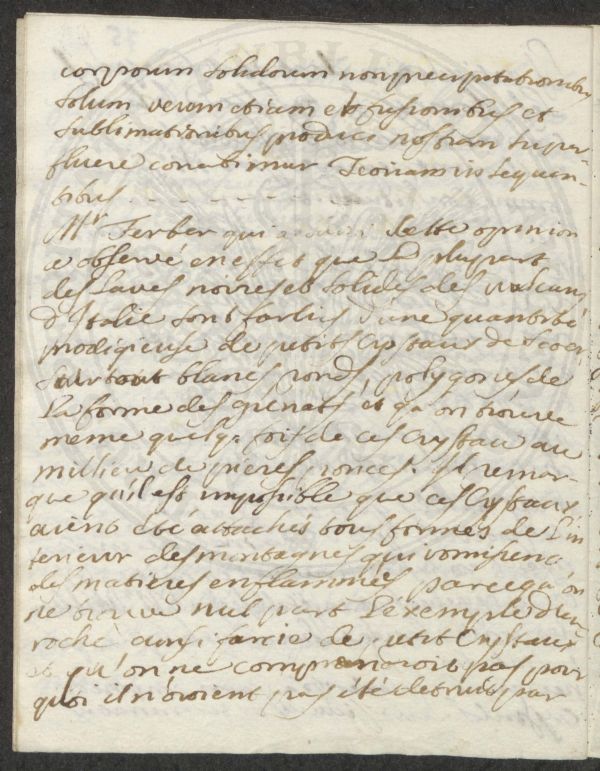 corporum solidorum non precipitationibus
solum verum etiam et fusionibus et
sublimationibus produci nostram super-
fluere conabimur Teoriam in sequen-
tibus - - - - - - -
Mr Ferber qui cette opinion
a observé en effet que la plupart
des Laves noires et solides des vulcans
d'Italie sont farlies d'une quantité
prodigieuse de petits Crystaux de
surtout blancs ronds, polygones de
La forme des grenats et qu'on trouve
meme quelq. fois de ces Crystau au
millieu de pieres ponces. il remar-
que qu'il est impossible que ces Crystaux
aient été attachés tous formés de L'in
terieur des montagnes qui vomissent
des matieres enflammées, parcequ'on
ne trouve nul part L'exemple d'une
roche aussi farcie de petit Crystaux
et qu'on ne comprandroit pas pour
quoi il n'auroient pas été detruits par